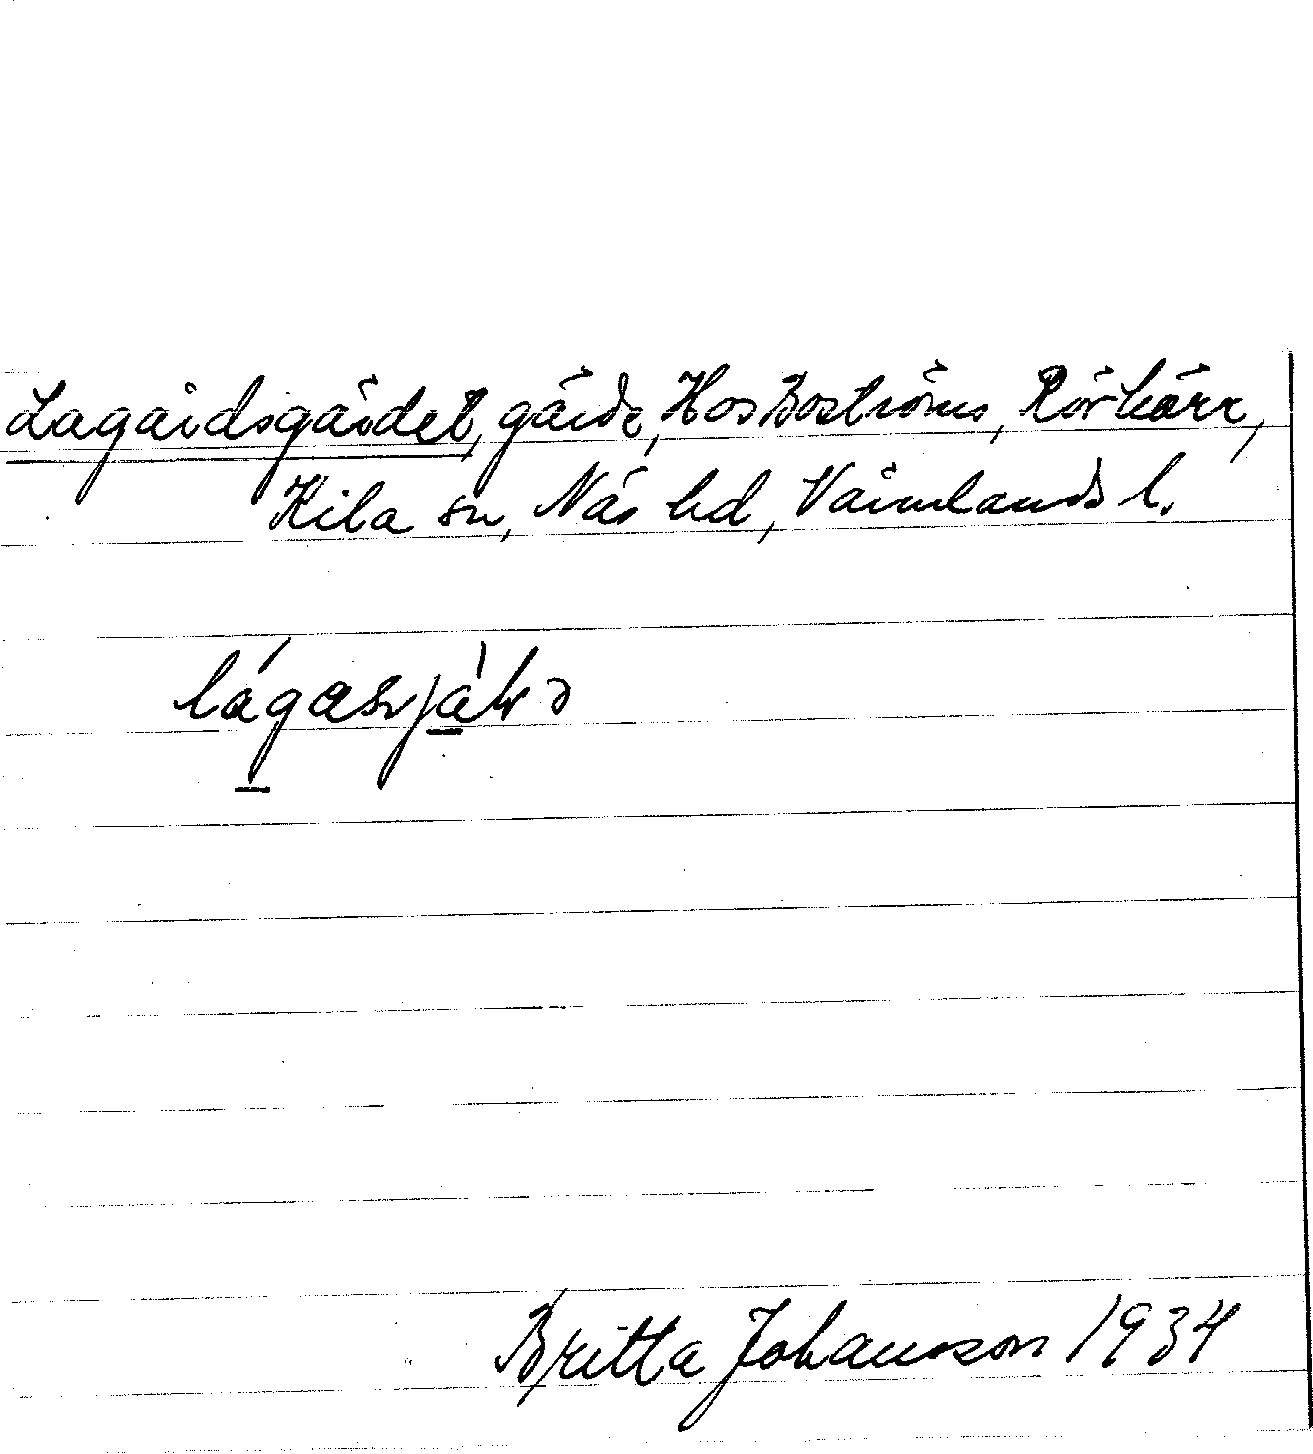 Lagårdsgärdet, gärde, Hos Boströms, Rörkärr,
Kila sn, Näs hd, Värmlands l.
Britta Johansson 1934